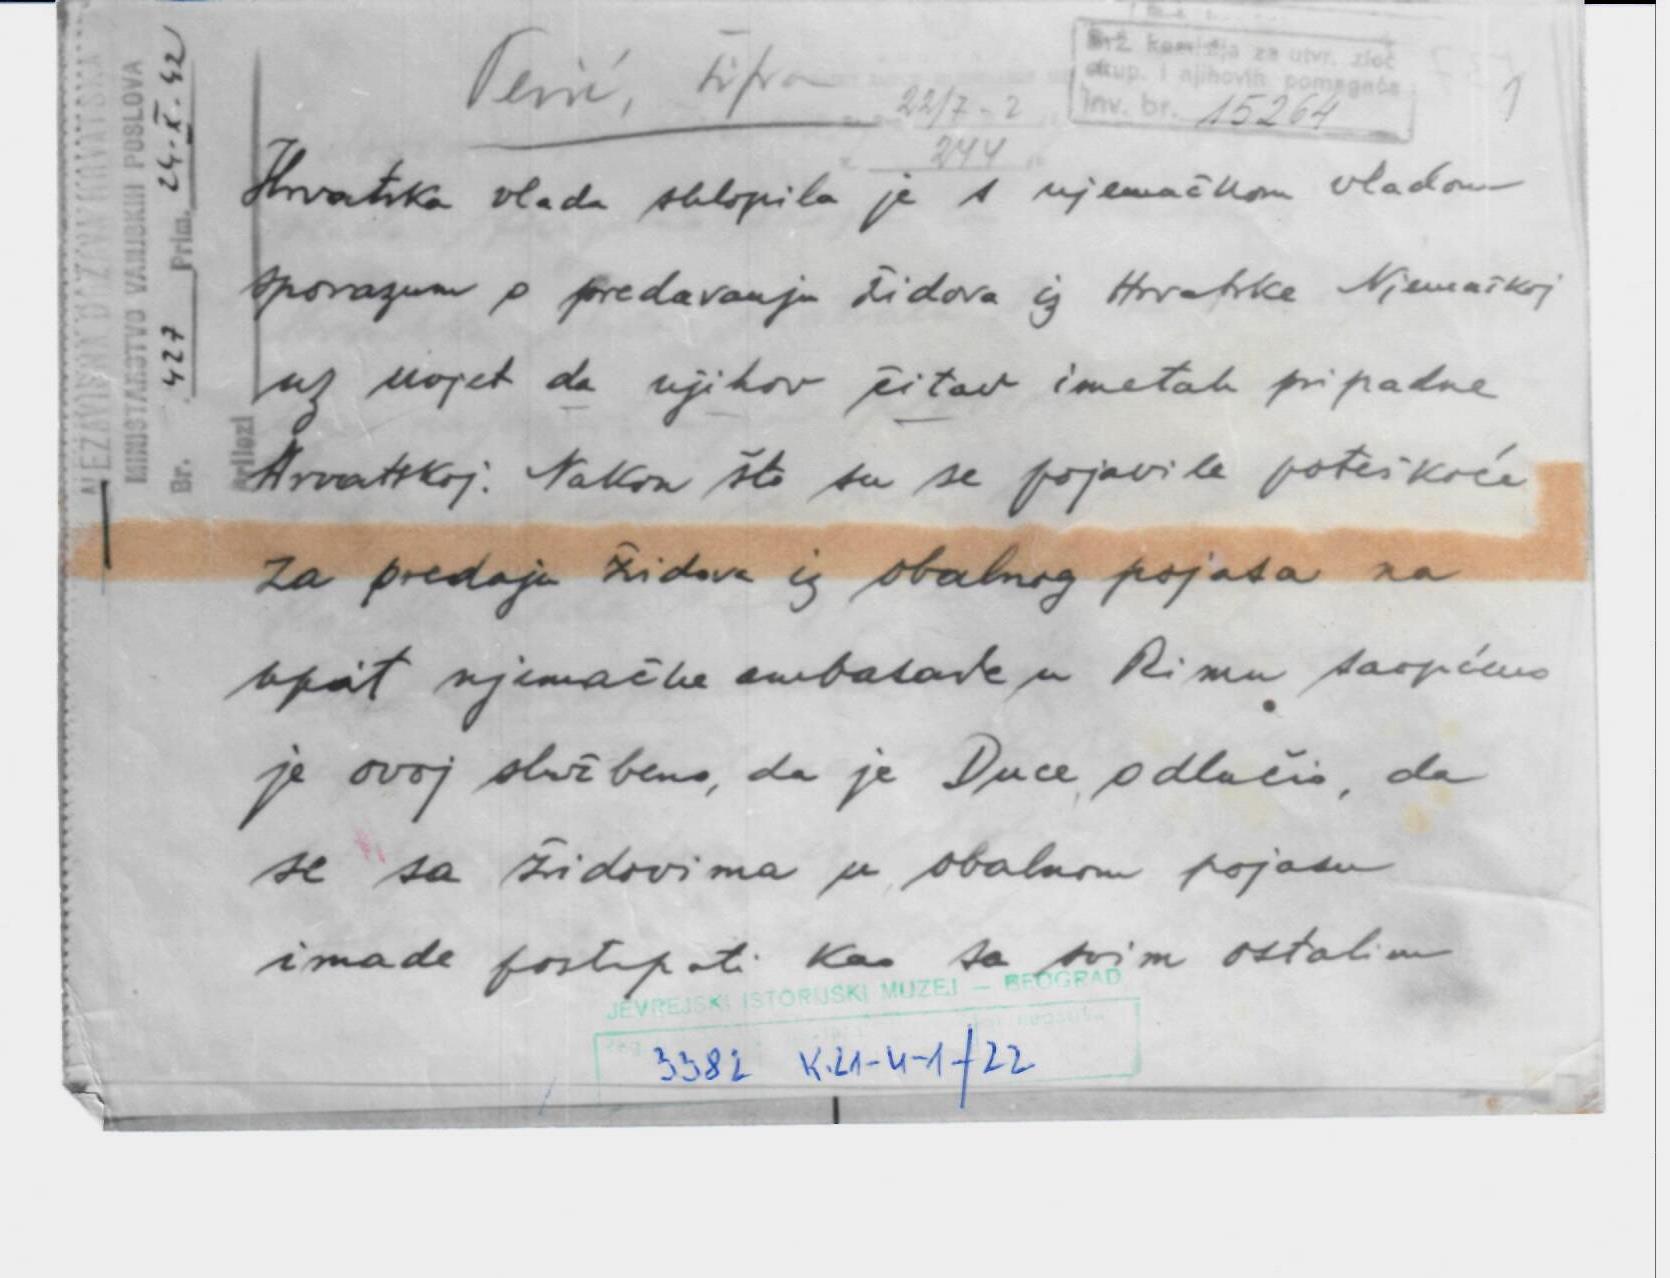 NEZAVISNA DRŽAVA HRVATSKA
MINISTARSTVO VANJSKIH POSLOVA
Br. 427 Prim. 24.X.42
Prilozi
Perić, šifra
22/7-2
244
kom sija za utvr. zloč
okup. i njihovih pomagača
Inv. br. 15264
1
Hrvatska vlada sklopila je s njemačkom vladom
sporazum o predavanju židova iz Hrvatske Njemačkoj
uz uvjet da njihov čitav imetak pripadne
Hrvatskoj. Nakon što su se pojavile poteškoće
za predaju židova iz obalnog pojasa na
upit njemačke ambasade u Rimu saopćeno
je ovoj službeno, da je Duce odlučio, da
se sa židovima u obalnom pojasu
imade postupati kao sa svim ostalim
JEVREJSKI ISTORIJSKI MUZEJ — BEOGRAD
reg.
3382 K.21-4-1/22